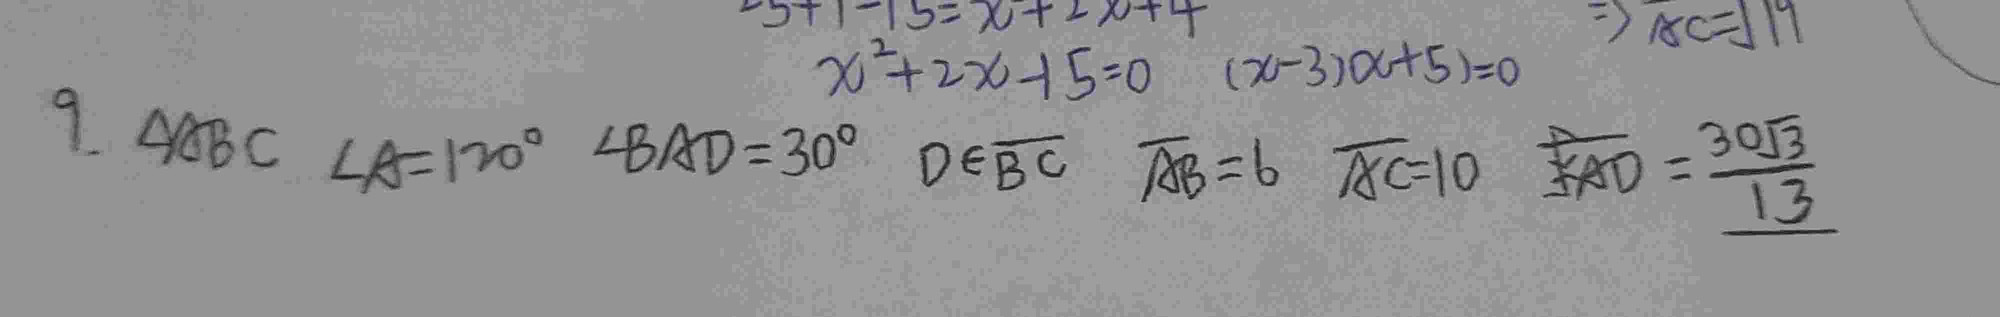 25+1-15=x²+2x+4
⇒ AC=√19
x²+2x-15=0 (x-3)(x+5)=0
9. △ABC ∠A=120° ∠BAD=30° D∈BC AB=6 AC=10 AD = 30√3/13